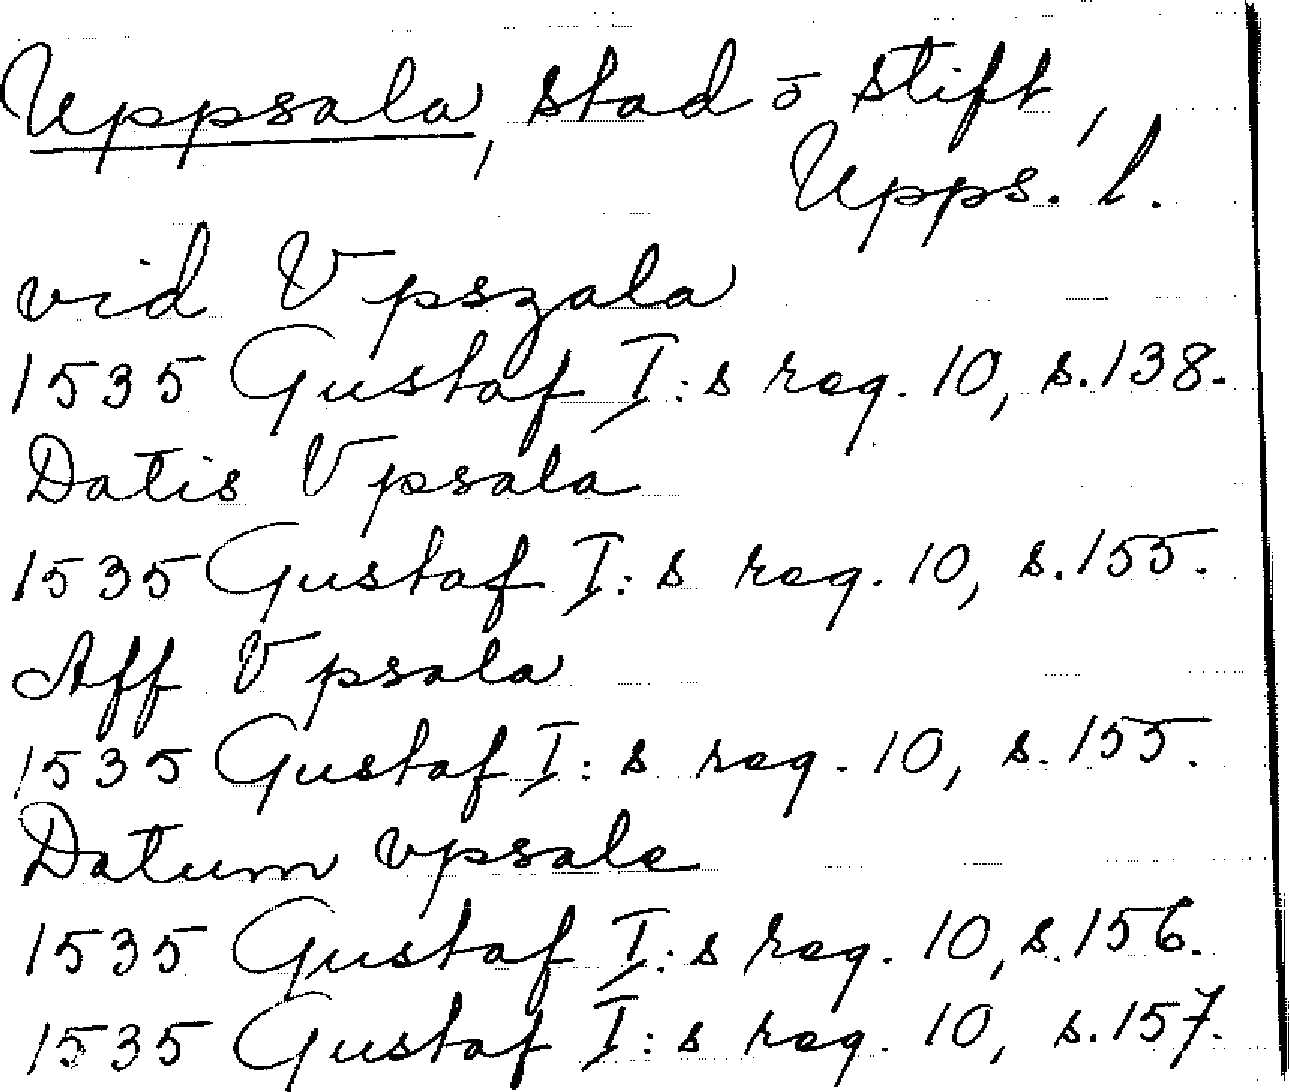 Uppsala, stad o stift,
Upps. l.
vid Vpszala
1535 Gustaf I:s reg. 10, s. 138.
Datis Vpsala
1535 Gustaf I:s reg. 10, s. 155.
Aff Vpsala
1535 Gustaf I:s reg. 10, s. 155.
Datum vpsale
1535 Gustaf I:s reg. 10, s. 156.
1535 Gustaf I:s reg. 10, s. 157.